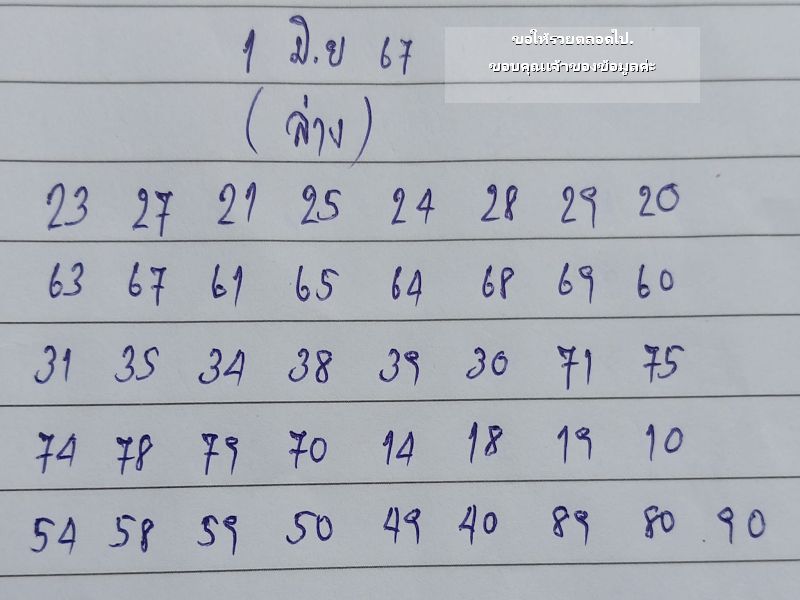 1 มิ.ย 67
ขอให้รวยตลอดไป.
ขอบคุณเจ้าของข้อมูลค่ะ
(ล่าง)
23 27 21 25 24 28 29 20
63 67 61 65 64 68 69 60
31 35 34 38 39 30 71 75
74 78 79 70 14 18 19 10
54 58 59 50 49 40 89 80 90